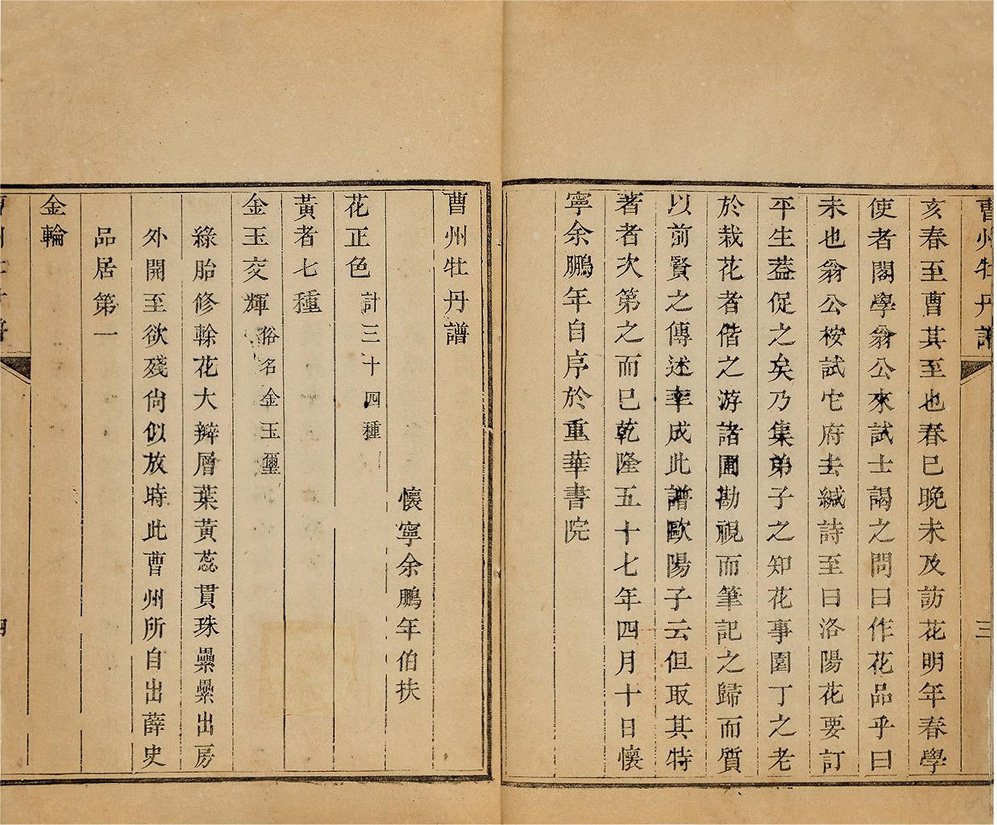 曹州牡丹譜
三
亥春至曹其至也春巳晚未及訪花明年春學
使者閣學翁公來試士謁之問曰作花品乎曰
未也翁公桉試它府去緘詩至曰洛陽花要訂
平生蓋促之矣乃集弟子之知花事園丁之老
於栽花者偕之游諸圃勘視而筆記之歸而質
以前賢之傳述率成此譜歐陽子云但取其特
著者次第之而已乾隆五十七年四月十日懷
寧余鵬年自序於重華書院
曹州牡丹譜
懷寧余鵬年伯扶
花正色計三十四種
黃者七種
金玉交輝俗名金玉璽
綠胎修榦花大瓣層葉黃蕊貫珠纍纍出房
外開至欲殘尙似放時此曹州所自出薛史
品居第一
金輪